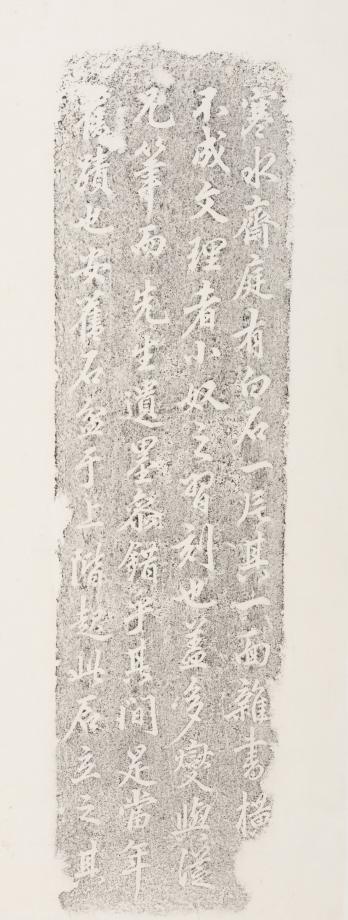 寒水齋庭有白石一片其一面雜書橫
不成文理者小奴之習刻也蓋多變與從
兄筆而先生遺墨錯乎其間是當年
舊蹟也安舊石盆于上階起此石立之其